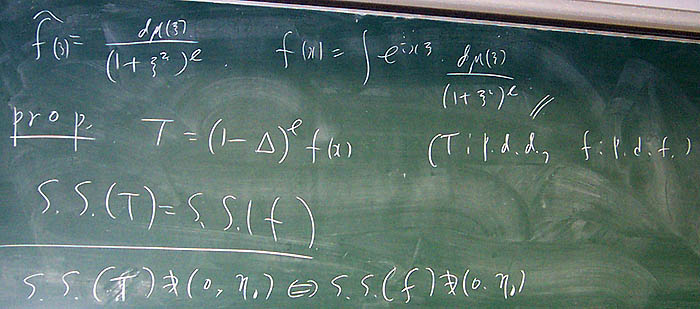 f̂(ξ) = dμ(ξ) / (1+ξ²)^ℓ . f(x) = ∫ e^{ixξ} dμ(ξ) / (1+ξ²)^ℓ //
prop. T = (1-Δ)^ℓ f(x) (T : p.d.d., f : p.d.f.)
S.S.(T) = S.S.(f)
S.S.(T) ∌ (0, η₀) ⇔ S.S.(f) ∌ (0. η₀)